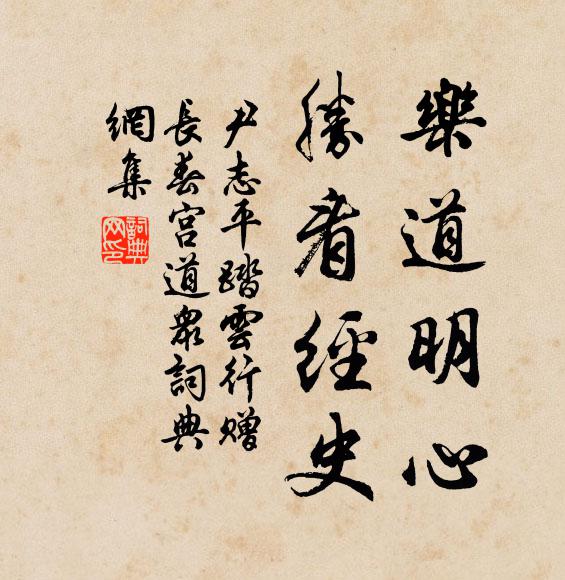 樂道明心
勝看經史
尹志平踏雲行贈
長春宮道眾詞典
網集
詞典網印